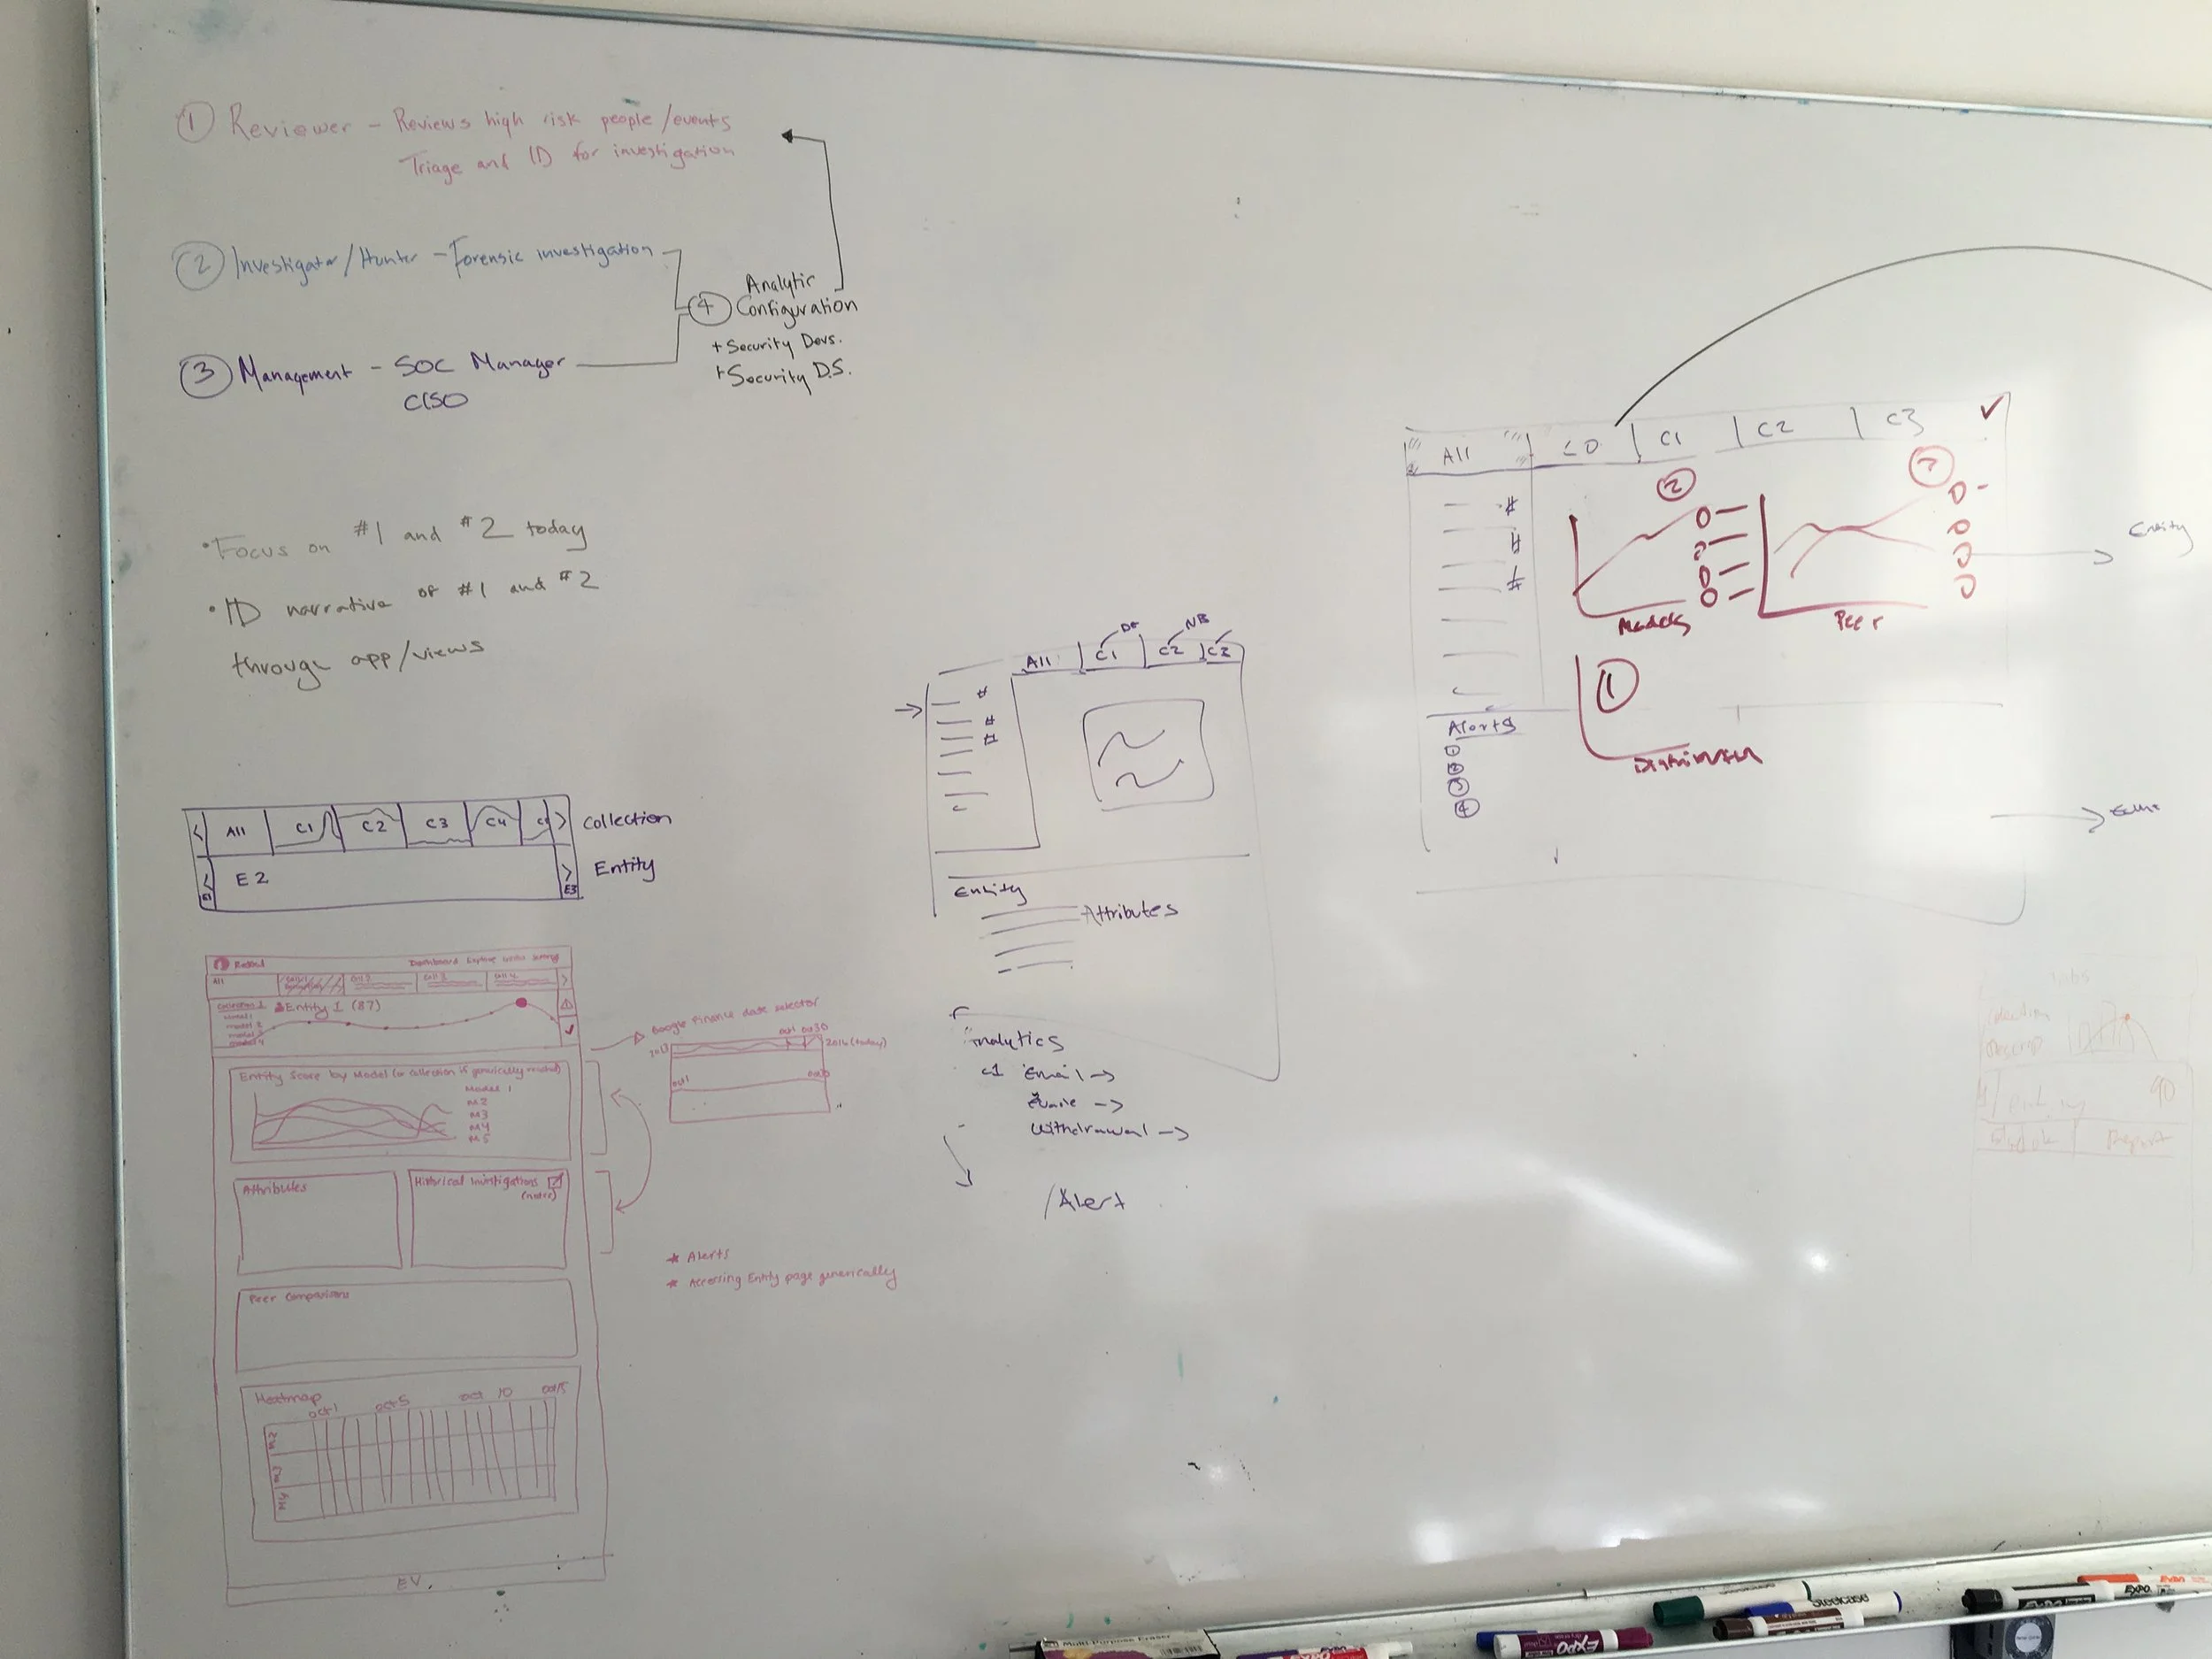 1 Reviewer - Reviews high risk people/events
Triage and ID for investigation
2 Investigator/Hunter - Forensic investigation
3 Management - SOC Manager
CISO
4 Analytic
Configuration
+ Security Devs.
+ Security D.S.
• Focus on #1 and #2 today
• ID narrative of #1 and #2
through app/views
< All C1 C2 C3 C4 > Collection
< E2 > Entity
E1 E3
RedOwl Dashboard Explore
All Coll 2 Coll 3 Coll 4 >
Collection 1 Entity 1 (87)
model 1
model 2
model 3
model 4
Entity Score by Model (or collection if generically routed)
Model 1
M2
M3
M4
M5
Attributes
Historical Investigations
(notes)
Peer Comparisons
Heatmap
Oct 1 Oct 5 Oct 10 Oct 15
M2
M3
M4
EV.
Google Finance date selector
Oct 1 Oct 30
2013 2016 (today)
Oct 1
* Alerts
* Accessing Entity page generically
NB
All C1 C2 C3
#
#
#
Entity
Attributes
Analytics
c1 Email →
Withdrawal →
/Alert
All C1 C2 C3
#
#
#
2
Models
Peer
1
Distribution
Alerts
1
2
3
4
Entity
90
Report
Multi-Purpose Eraser
EXPO
EXPO
Steelcase
EXPO
EXPO